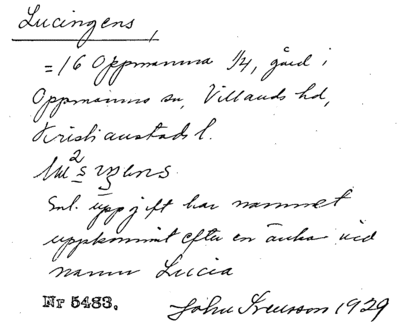 Lucingens,
= 16 Oppmanna 1/4, gård i
Oppmanna sn, Villands hd,
Kristianstads l.
Enl. uppgift har namnet
uppkommit efter en änka vid
namn Lucia
Nr 5483. John 1929